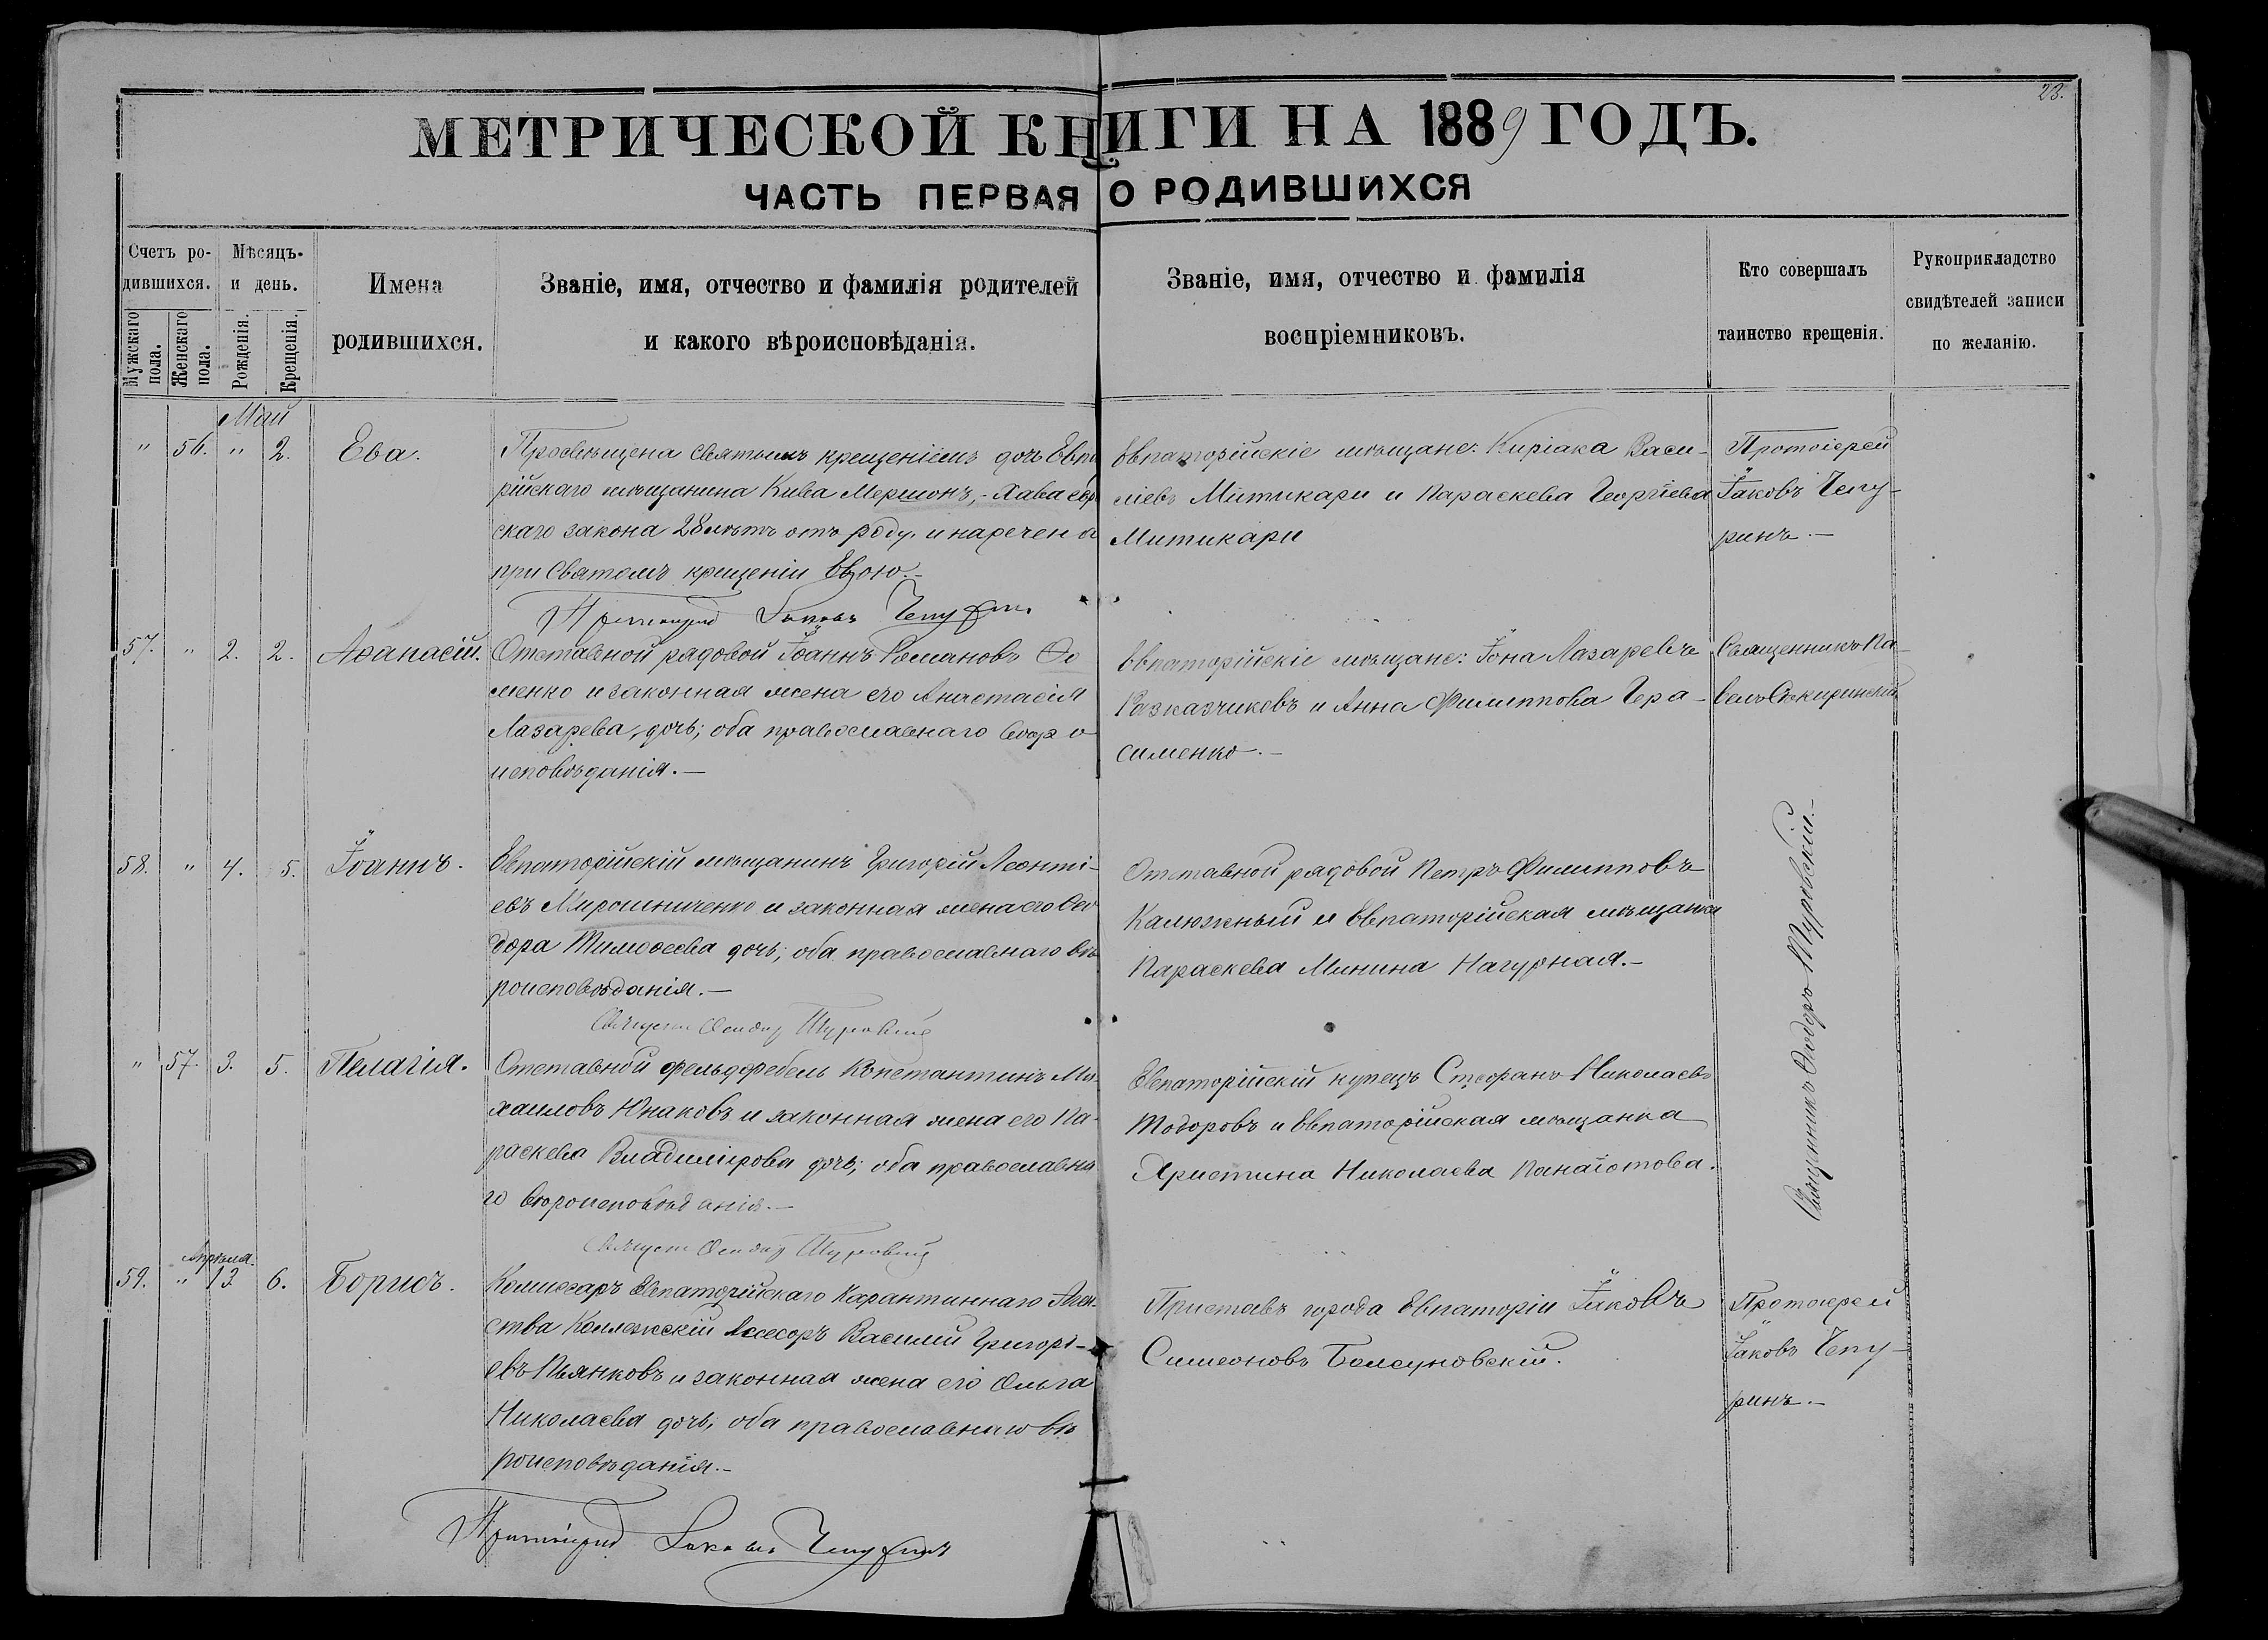 23.
МЕТРИЧЕСКОЙ КНИГИ НА 1889 ГОДЪ.
ЧАСТЬ ПЕРВАЯ О РОДИВШИХСЯ
Счетъ ро-
дившихся.
Мужскаго пола.
Женскаго пола.
Мѣсяцъ.
и день.
Рожденія.
Крещенія.
Имена
родившихся.
Званіе, имя, отчество и фамилія родителей
и какого вѣроисповѣданія.
Званіе, имя, отчество и фамилія
воспріемниковъ.
Кто совершалъ
таинство крещенія.
Рукоприкладство
свидѣтелей записи
по желанію.
Май
" 56. " 2. Ева.
Просвѣщена Святымъ крещеніемъ дочь Евпато
рійскаго мѣщанина Кива Мершонъ, - Хава евр
скаго закона 28 лѣтъ отъ роду, и наречена
при Святомъ крещеніи Евою.-
Протоіерей Іаковъ Чепуринъ
Евпаторійскіе мѣщане: Киріака Васи-
ліевъ Митикари и Параскева Георгіева
Митикари
Протоіерей
Іаковъ Чепу-
ринъ.-
57. " 2. 2. Аѳанасій.
Отставной рядовой Іоаннъ Романовъ Ѳо
менко и законная жена его Анастасія
Лазарева, дочь; оба православнаго вѣро
исповѣданія.-
Евпаторійскіе мѣщане: Іона Лазаревъ
Разказчиковъ и Анна Филиппова Гера-
сименко.-
Священникъ Па-
велъ Сѣкиринскій
58. " 4. 5. Іоаннъ.
Евпаторійскій мѣщанинъ Григорій Леонті-
евъ Мирошниченко и законная жена его Ѳео
дора Тимоѳеева дочь; оба православнаго вѣ
роисповѣданія.-
Священникъ Ѳеодоръ Туровскій
Отставной рядовой Петръ Филипповъ
Калюжный и Евпаторійская мѣщанка
Параскева Минина Нагурная.-
Священникъ Ѳеодоръ Туровскій.-
" 57. 3. 5. Пелагія.
Отставной фельдфебель Константинъ Ми-
хаиловъ Юнаковъ и законная жена его Па-
раскева Владимірова дочь; оба православна
го вѣроисповѣданія.-
Священникъ Ѳеодоръ Туровскій
Евпаторійскій купецъ Стефанъ Николаевъ
Тодоровъ и Евпаторійская мѣщанка
Христина Николаева Панаіотова.
Апрѣля.
59. " 13. 6. Борисъ.
Комиссаръ Евпаторійскаго Карантиннаго Аген-
ства Коллежскій Ассесоръ Василій Григорі-
евъ Пьянковъ и законная жена его Ольга
Николаева дочь; оба православнаго вѣ
роисповѣданія.-
Протоіерей Іаковъ Чепуринъ
Приставъ города Евпаторіи Іаковъ
Симеоновъ Болсуновскій.
Протоіерей
Іаковъ Чепу-
ринъ.-